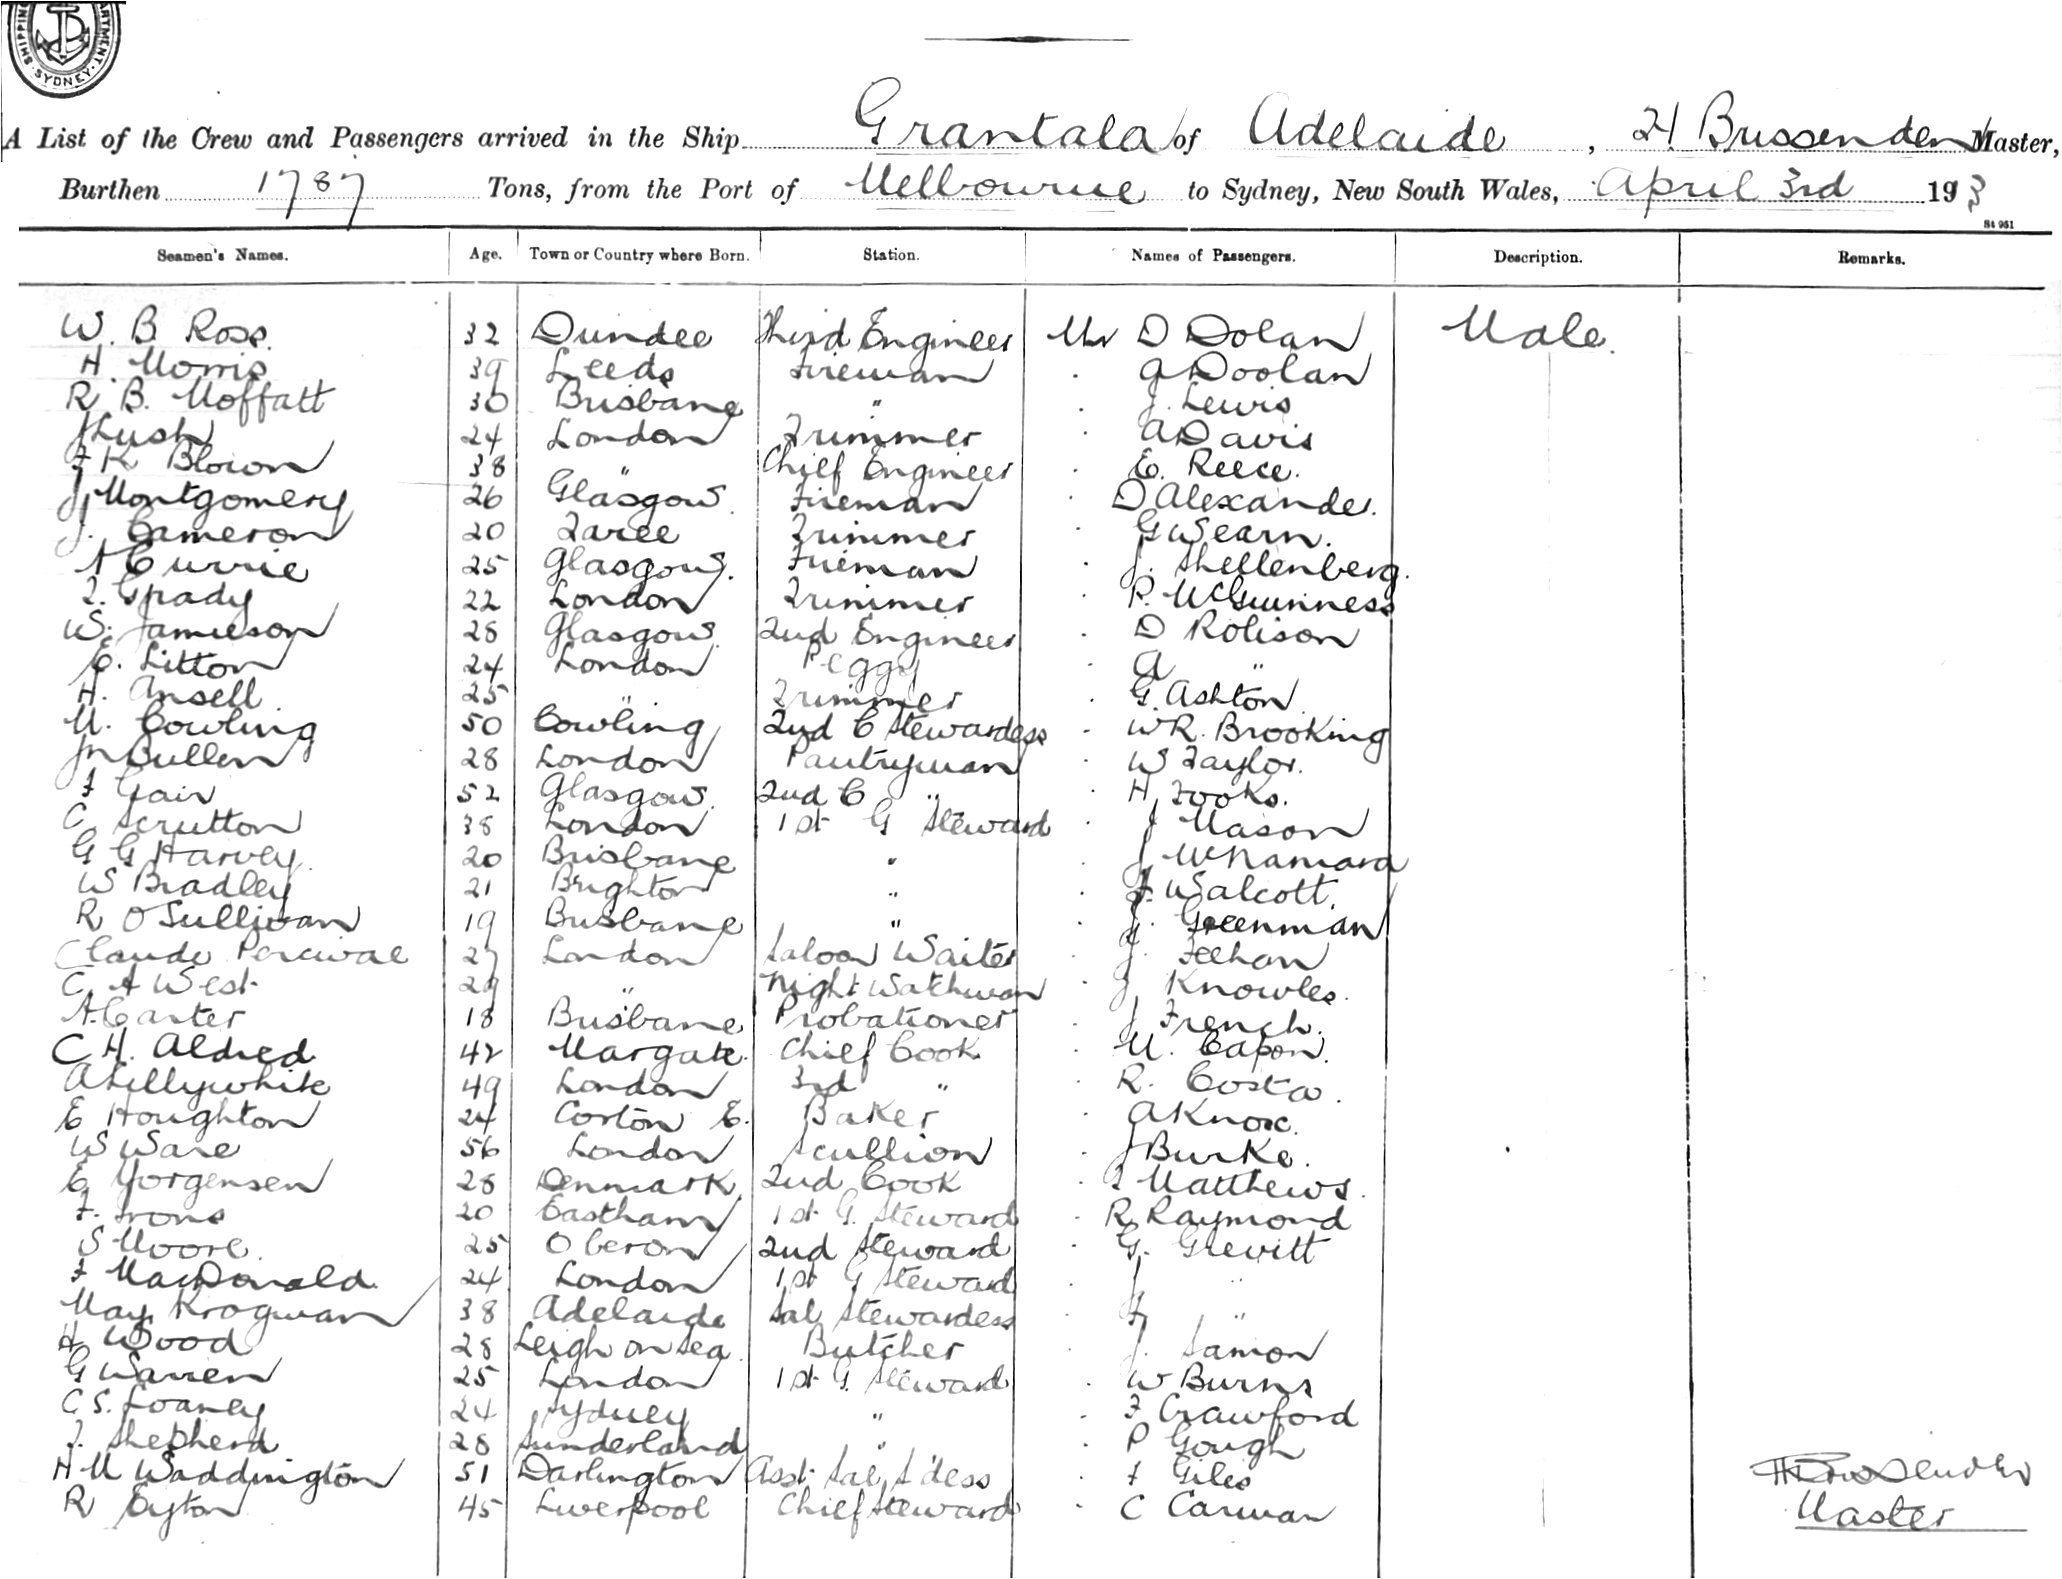 SHIPPING DEPARTMENT. SYDNEY.
A List of the Crew and Passengers arrived in the Ship Grantala of Adelaide, H Brissenden Master,
Burthen 1787 Tons, from the Port of Melbourne to Sydney, New South Wales, April 3rd 193
St 951
Seamen's Names. Age. Town or Country where Born. Station. Names of Passengers. Description. Remarks.
W. B Ross. 32 Dundee Third Engineer Mr D Dolan Male.
H. Morris 39 Leeds Fireman . J Doolan
R. B. Moffatt 30 Brisbane " . J. Lewis
J Lush 24 London Trimmer . A Davis
J K Blown 38 " Chief Engineer . E. Reece.
J Montgomery 26 Glasgow Fireman . D Alexander.
J. Cameron 20 Taree Trimmer . G Wearn.
A Currie 25 Glasgow. Fireman . J. Shellenberg.
T. Grady 22 London Trimmer . P. McGuinness
W. Jamieson 28 Glasgow 2nd Engineer . D Robison
E. Litton 24 London Peggy . A "
H. Ansell 25 " Trimmer . G. Ashton
M. Cowling 50 Cowling 2nd C Stewardess . W R. Brooking
Jn Bullen 28 London Pantryman . W Taylor.
F Gair 52 Glasgow. 2nd C " . H. Fooks.
C. Scrutton 38 London 1st G Steward . J Mason
G G Harvey. 20 Brisbane " . J McNamara
W Bradley 21 Brighton " . F. Walcott.
R O'Sullivan 19 Brisbane " . J. Greenman
Claude Percival 27 London Saloon Waiter . J. Feehan
C. A West 29 " Night Watchman . J Knowles.
A. Carter 18 Brisbane Probationer . J French.
C. H. Aldred 42 Margate. Chief Cook . M. Capon.
A Lillywhite 49 London 3rd " . R. Costa.
E Houghton 24 Corton E. Baker . A Knox.
W Ware 56 London Scullion . J Burke.
E Yorgensen 28 Denmark 2nd Cook . T Matthews.
F. Irons 20 Eastham 1st G. Steward . R Raymond
S Moore. 25 Oberon 2nd Steward . G. Grevitt
F MacDonald. 24 London 1st G Steward . J "
May Krogman 38 Adelaide Sal Stewardess . F "
H Wood 28 Leigh on Sea Butcher . J. Samon
G Warren 25 London 1st G. Steward . W Burns
C S. 24 Sydney " . F Crawford
T. Shepherd 28 Sunderland " . P Gough
H M Waddington 51 Darlington Asst Sal S'dess . F Giles
R Eyton 45 Liverpool Chief Steward . C Carman
H Brissenden
Master